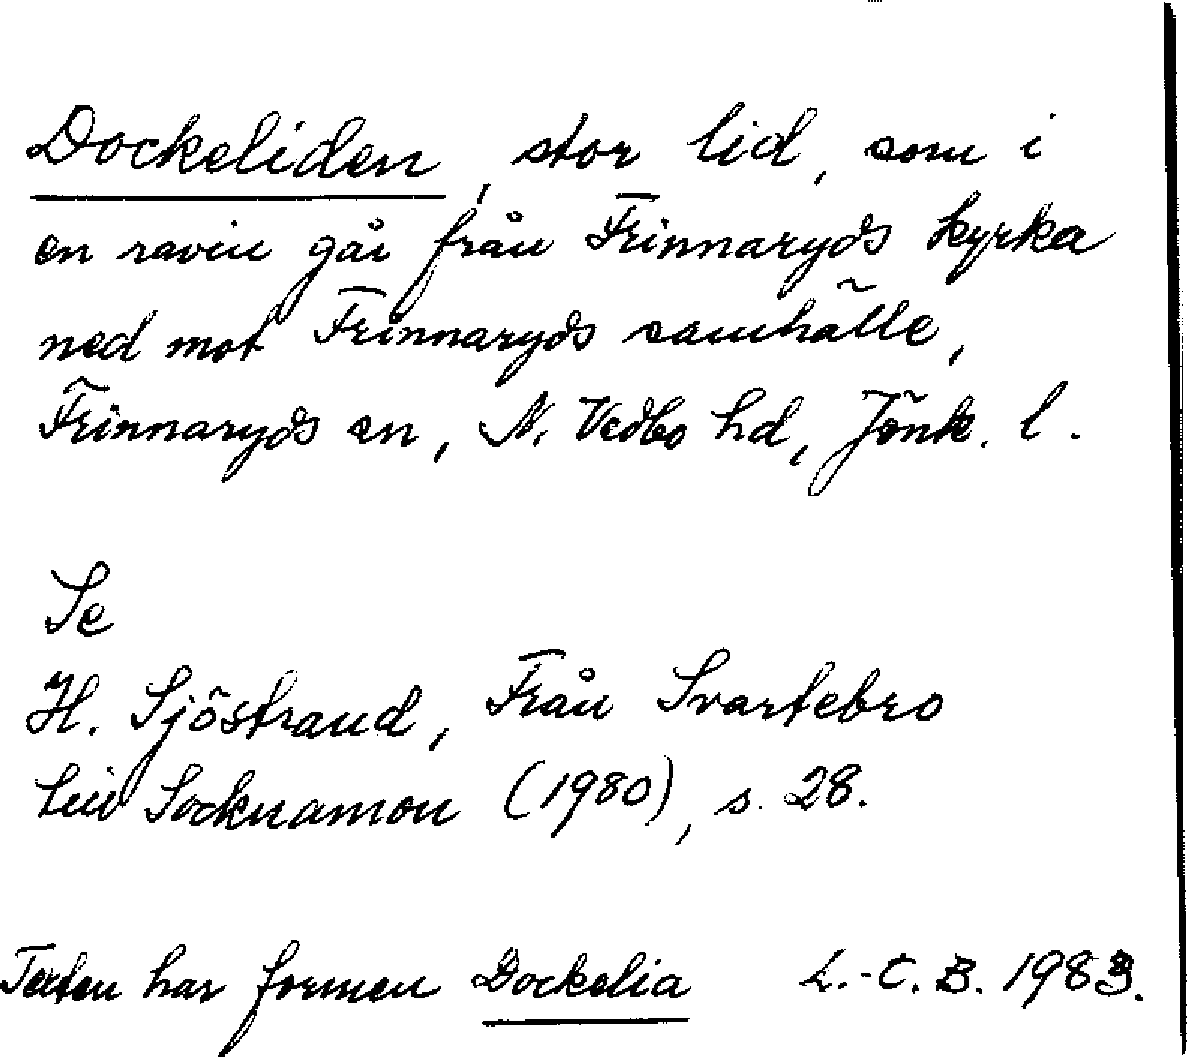 Dockeliden, stor lid, som i
en ravin går från Frinnaryds kyrka
ned mot Frinnaryds samhälle,
Frinnaryds sn, N. Vedbo hd, Jönk. l.
Se
H. Sjöstrand, Från Svartebro
till Socknamon (1980), s. 28.
Texten har formen Dockelia L.-C. B. 1983.